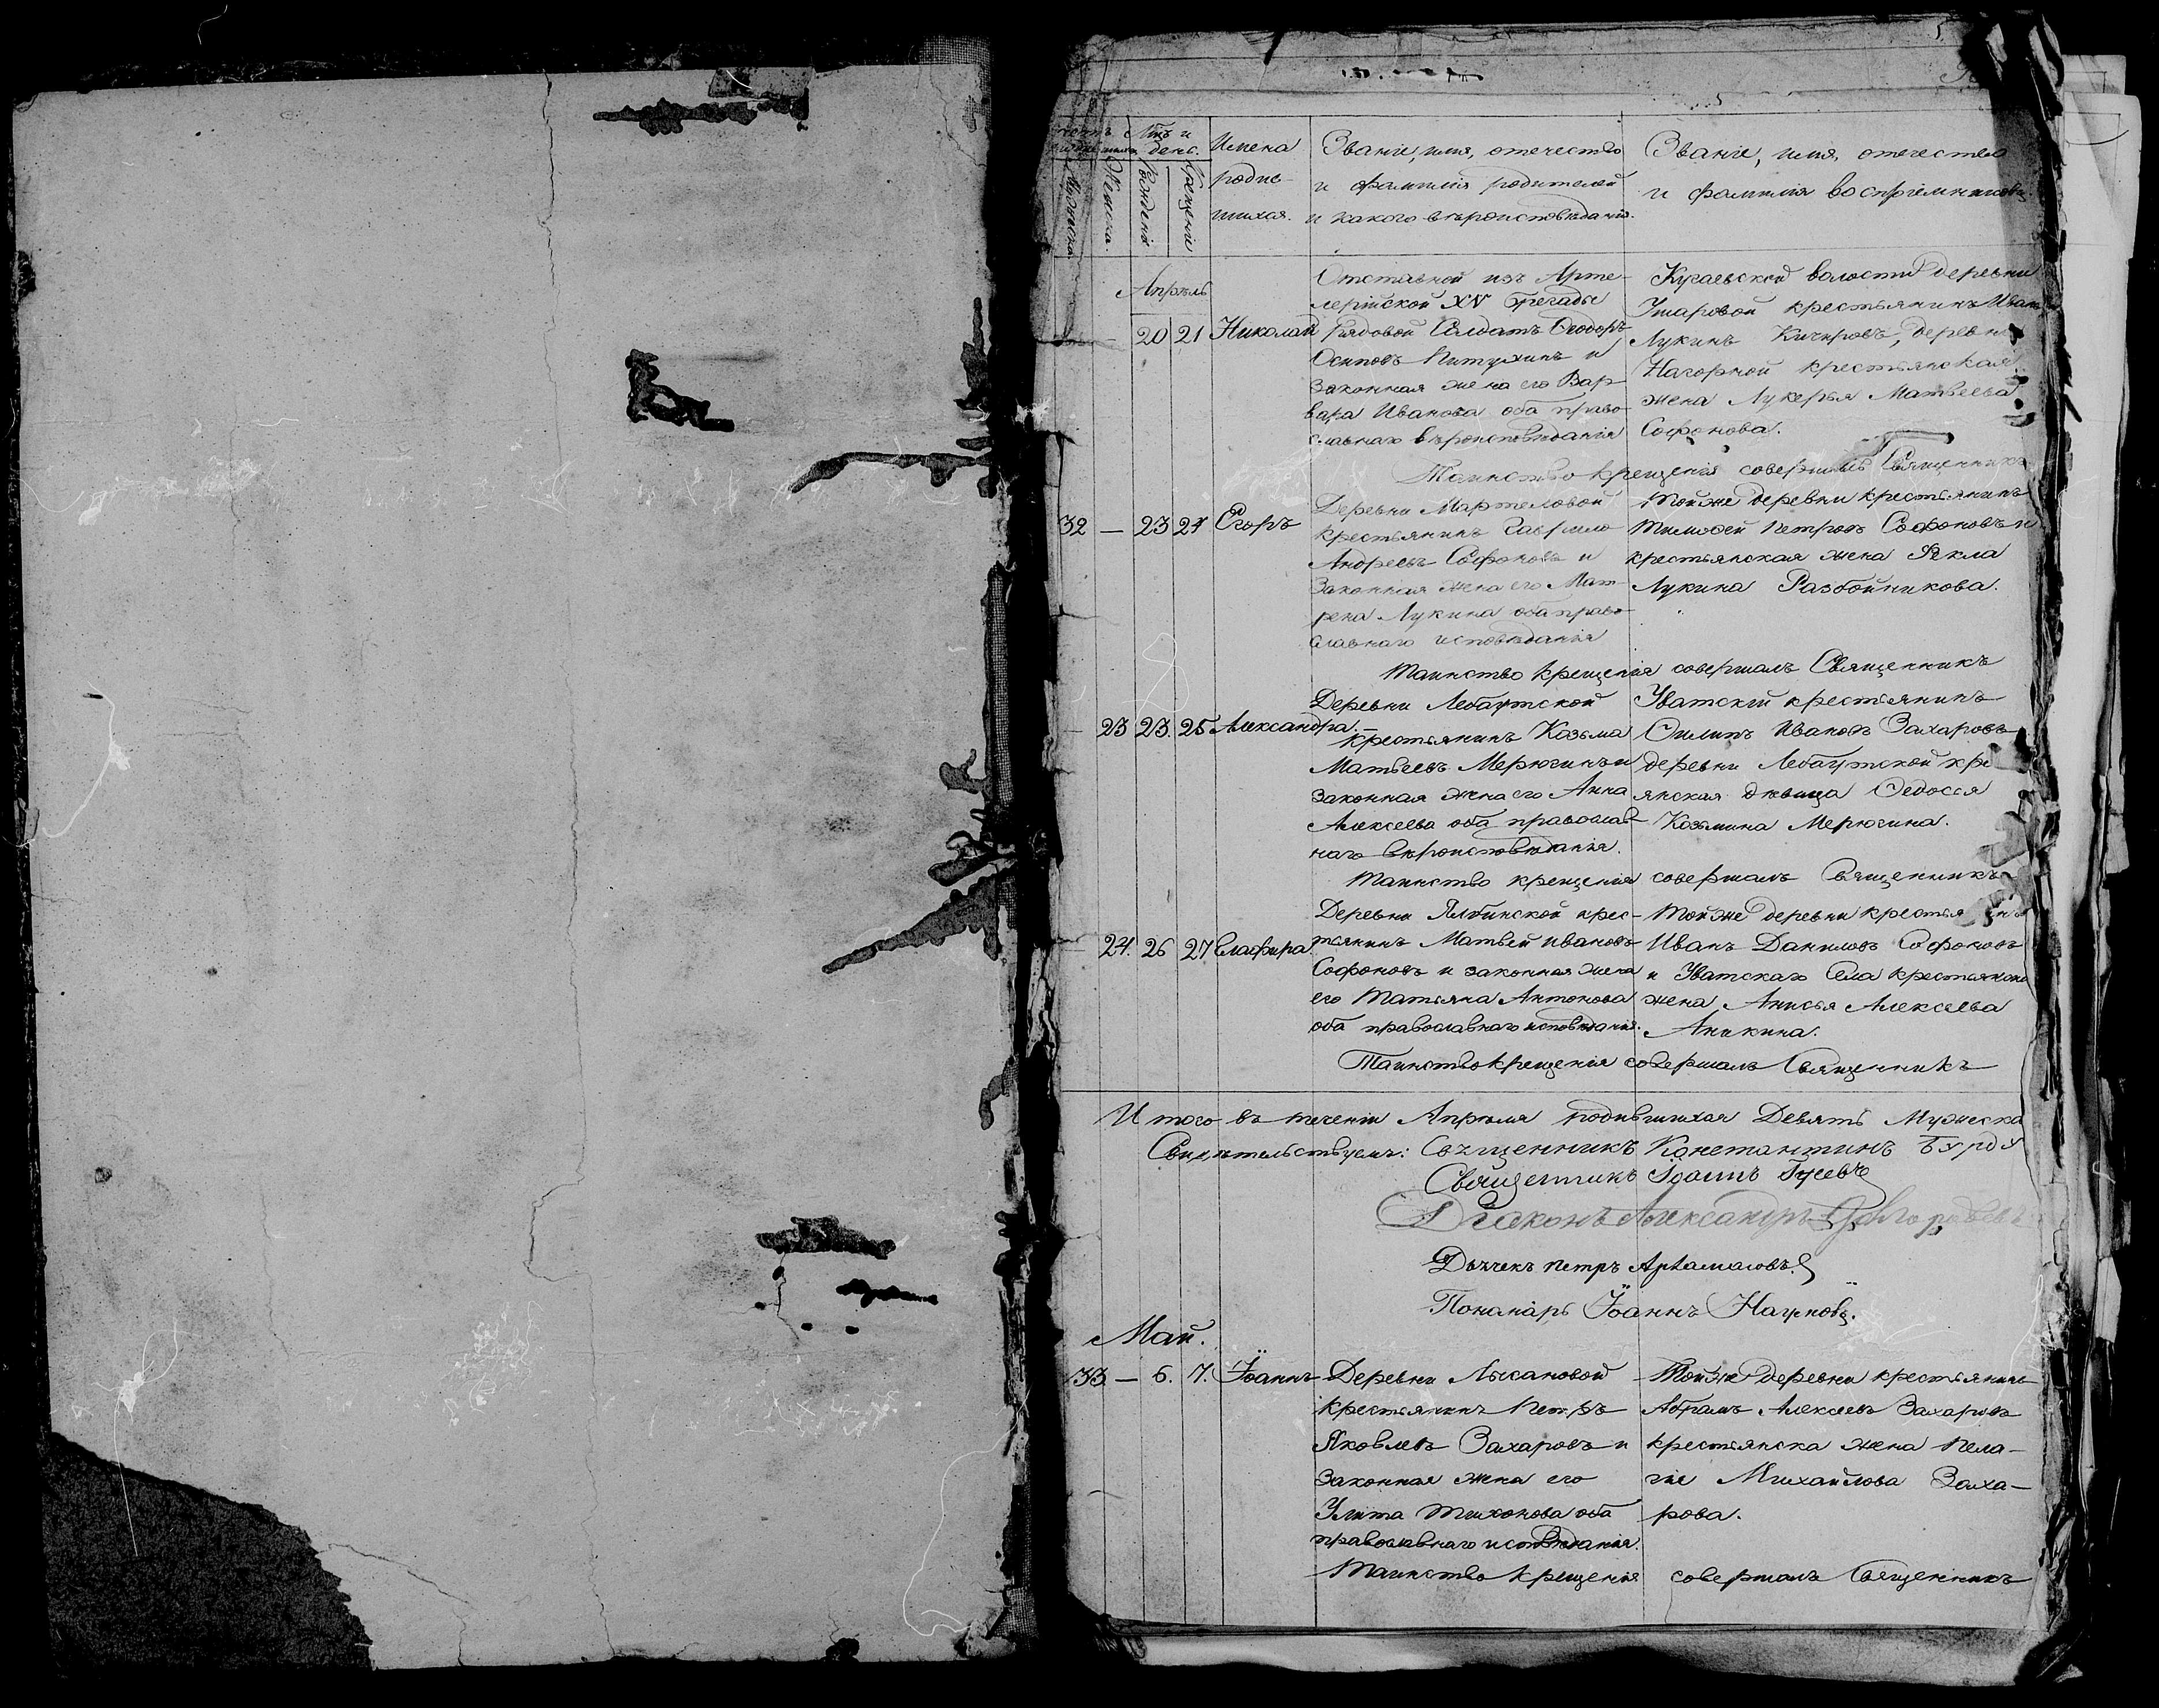 5
Мѣс. и
день.
Имена
родив-
шихся.
Званіе, имя, отечество
и фамилія родителей
и какого вѣроисповѣданія.
Званіе, имя, отечество
и фамилія воспріемниковъ.
Мужеска
Женска.
Рожденія
Крещенія
Апрѣль
— 20 21 Николай
Отставной изъ Арте-
лерійской XV бригады
Рядовой Солдатъ Ѳеодоръ
Осиповъ Питухинъ и
законная жена его Вар-
вара Иванова оба право-
славнаго вѣроисповѣданія
Кугаевской волости деревни
Ушаровой крестьянинъ Иванъ
Лукинъ Кичировъ, деревни
Нагорной крестьянская
жена Лукерья Матвѣева
Софонова.
Таинство крещенія совершалъ Священникъ
32 — 23 24 Егоръ
Деревни Мартеловой
крестьянинъ Гаврило
Андреевъ Софоновъ и
законная жена его Мат-
рена Лукина оба право-
славнаго исповѣданія
Той же деревни крестьянинъ
Тимофей Петровъ Софоновъ и
крестьянская жена Ѳекла
Лукина Разбойникова.
Таинство крещенія совершалъ Священникъ
— 23 23. 25 Александра.
Деревни Лебаутской
крестьянинъ Козьма
Матвѣевъ Мерюгинъ и
законная жена его Анна
Алексѣева оба православ-
наго вѣроисповѣданія.
Уватскій крестьянинъ
Филипъ Ивановъ Захаровъ
деревни Лебаутской кре
янская дѣвица Ѳедосья
Козьмина Мерюгина.
Таинство крещенія совершалъ Священникъ
— 24. 26 27 Глафира.
Деревни Ялбинской крес-
тьянинъ Матвѣй Ивановъ
Софоновъ и законная жена
его Татьяна Антонова
оба православнаго исповѣданія.
Той же деревни крестья
Иванъ Даниловъ Софоновъ
и Уватскаго Села крестьянская
жена Анисья Алексѣева
Аникина.
Таинство крещенія совершалъ Священникъ
Итого въ теченіи Апрѣля родившихся Девять Мужеска
Свидѣтельствуемъ: Священникъ Константинъ Бурду
Священникъ Іоаннъ Гусевъ
Діаконъ Александръ
Дьячекъ Петръ Артамановъ
Понамарь Іоаннъ Наумовъ.
Май.
33 — 6. 7. Іоаннъ
Деревни Лысановой
крестьянинъ Петръ
Яковлевъ Захаровъ и
законная жена его
Улита Тихонова оба
православнаго исповѣданія.
Той же деревни крестьянинъ
Абрамъ Алексѣевъ Захаровъ
крестьянска жена Пела-
гіе Михайлова Заха-
рова.
Таинство крещенія совершалъ Священникъ